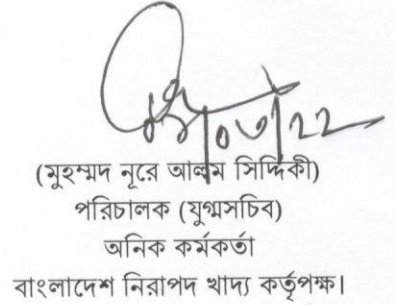 (মুহম্মদ নূরে আলম সিদ্দিকী)
পরিচালক (যুগ্মসচিব)
অনিক কর্মকর্তা
বাংলাদেশ নিরাপদ খাদ্য কর্তৃপক্ষ।